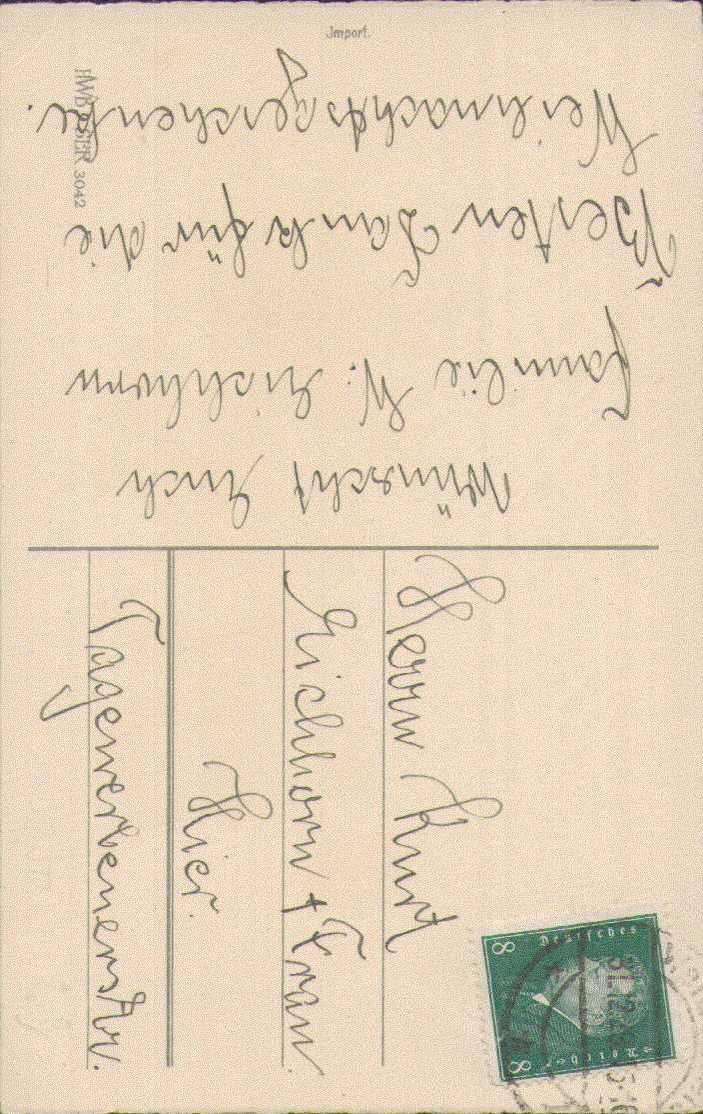 Import.
HWB SER 3042
Wünscht Euch
Familie W. Eichhorn
Besten Dank für die
Weihnachtsgeschenke.
Herrn Kurt
Eichhorn + Frau
Hier.
Tagewerbenerstr.
8 Deutsches Reich 8
31.12.